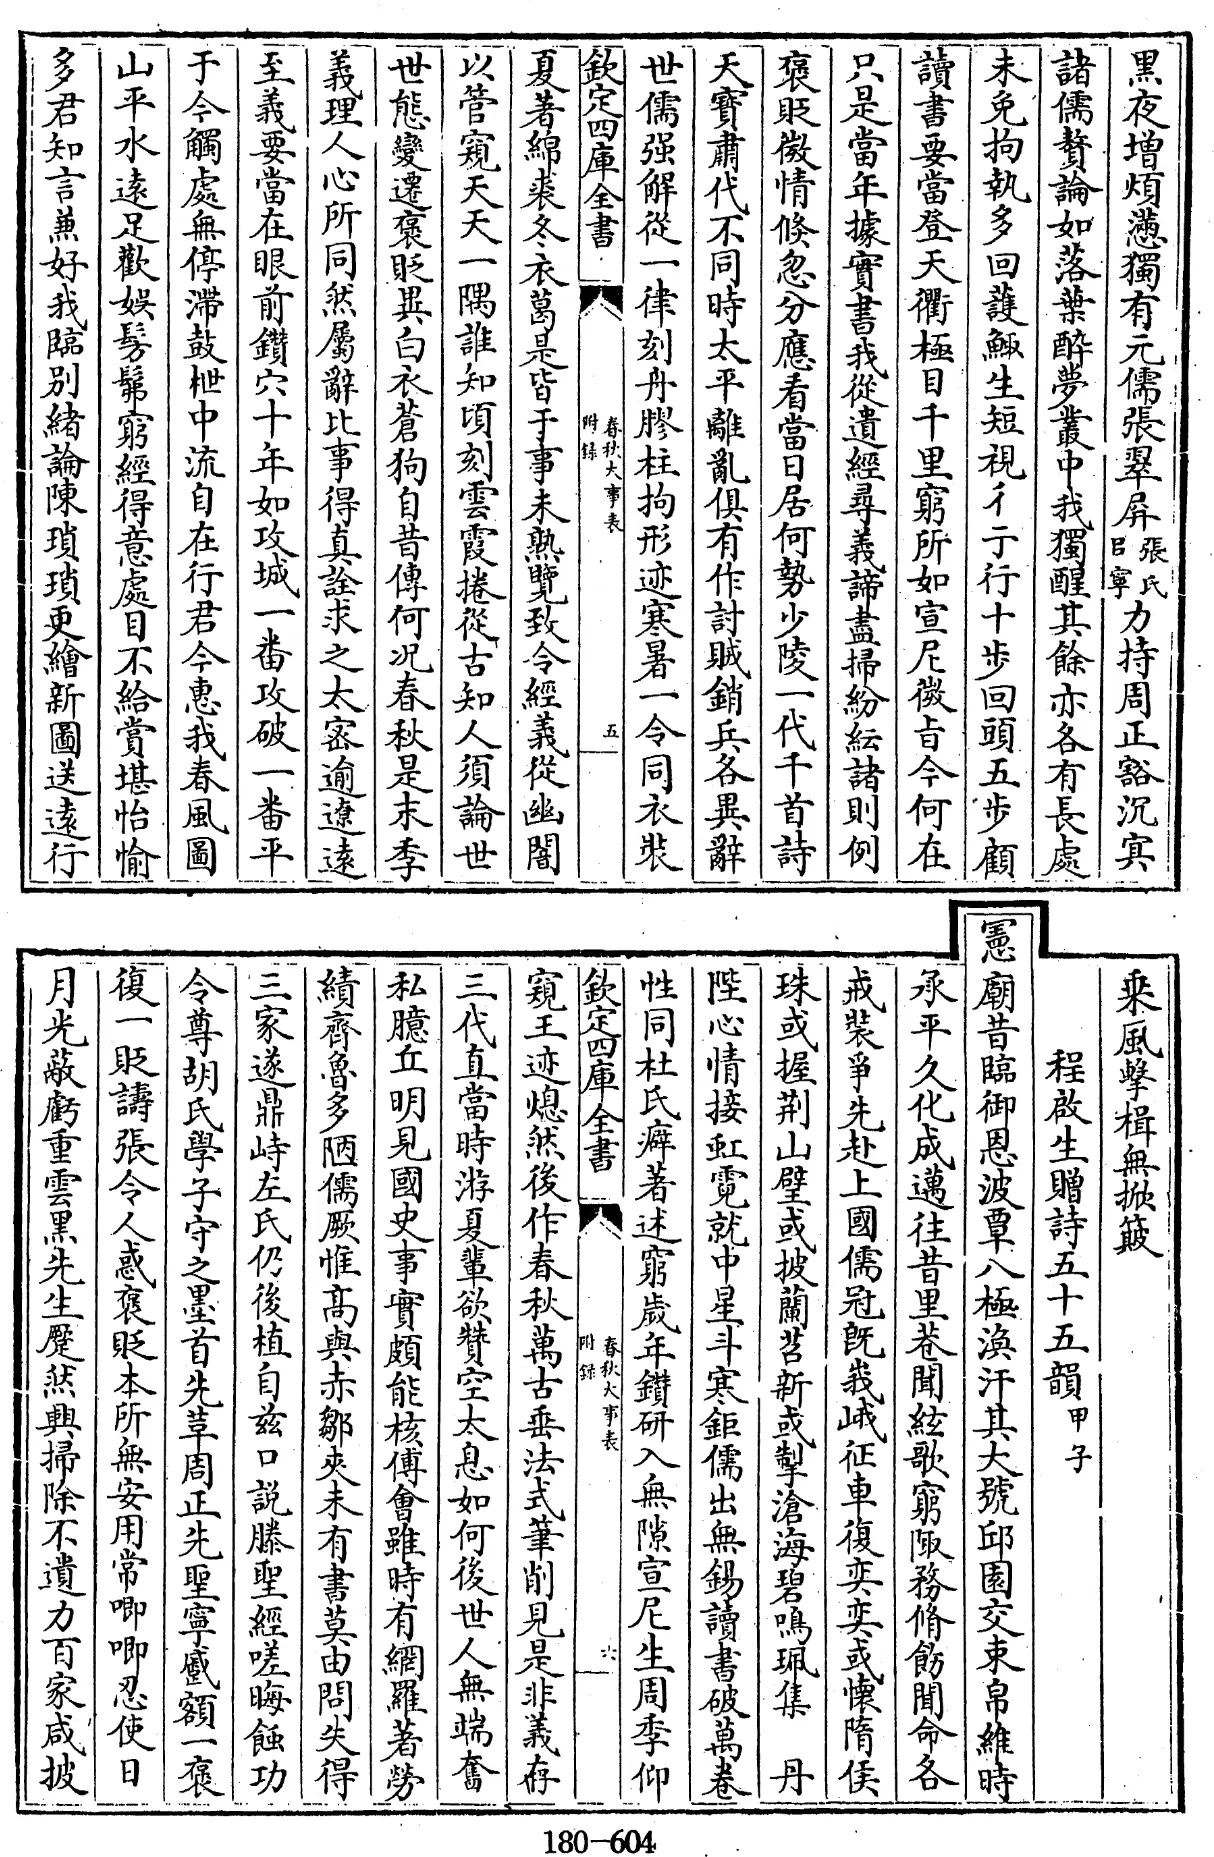 黑夜增煩懣獨有元儒張翠屏張氏吕寧力持周正豁沉冥
諸儒贅論如落葉醉夢叢中我獨醒其餘亦各有長處
未免拘執多回護鯫生短視彳亍行十步回頭五步顧
讀書要當登天衢極目千里窮所如宣尼微旨今何在
只是當年據實書我從遺經尋義諦盡掃紛紜諸則例
襃貶微情倐忽分應看當日居何勢少陵一代千首詩
天寶肅代不同時太平離亂俱有作討賊銷兵各異辭
世儒强解從一律刻舟膠柱拘形迹寒暑一令同衣裝
欽定四庫全書
春秋大事表
附録
五
夏著綿裘冬衣葛是皆于事未熟覽致令經義從幽闇
以管窺天天一隅誰知頃刻雲霞捲從古知人須論世
世態變遷襃貶異白衣蒼狗自昔傳何况春秋是末季
義理人心所同然屬辭比事得真詮求之太宻逾遼遠
至義要當在眼前鑽穴十年如攻城一番攻破一番平
于今觸處無停滯鼓枻中流自在行君今惠我春風圖
山平水遠足歡娱髣髴窮經得意處目不給賞堪怡愉
多君知言兼好我臨别緒論陳瑣瑣更繪新圖送遠行
乘風擊楫無掀簸
程啟生贈詩五十五韻甲子
憲廟昔臨御恩波覃八極渙汗其大號邱園交束帛維時
承平久化成邁往昔里巷聞絃歌窮陬務脩飭聞命各
戒裝爭先赴上國儒冠既峩峨征車復奕奕或懷隋侯
珠或握荆山璧或披蘭苕新或掣滄海碧鳴珮集 丹
陛心情接虹霓就中星斗寒鉅儒出無錫讀書破萬卷
性同杜氏癖著述窮歲年鑽研入無隙宣尼生周季仰
欽定四庫全書
春秋大事表
附録
六
窺王迹熄然後作春秋萬古垂法式筆削見是非義存
三代直當時游夏輩欲贊空太息如何後世人無端奮
私臆丘明見國史事實頗能核傅會雖時有網羅著勞
績齊魯多陋儒厥惟髙與赤鄒夾未有書莫由問失得
三家遂鼎峙左氏仍後植自兹口説騰聖經嗟晦蝕功
令尊胡氏學子守之墨首先荁周正先聖寧慼額一襃
復一貶譸張令人惑襃貶本所無安用常唧唧忍使日
月光蔽虧重雲黑先生蹷然興掃除不遺力百家咸披
180-604